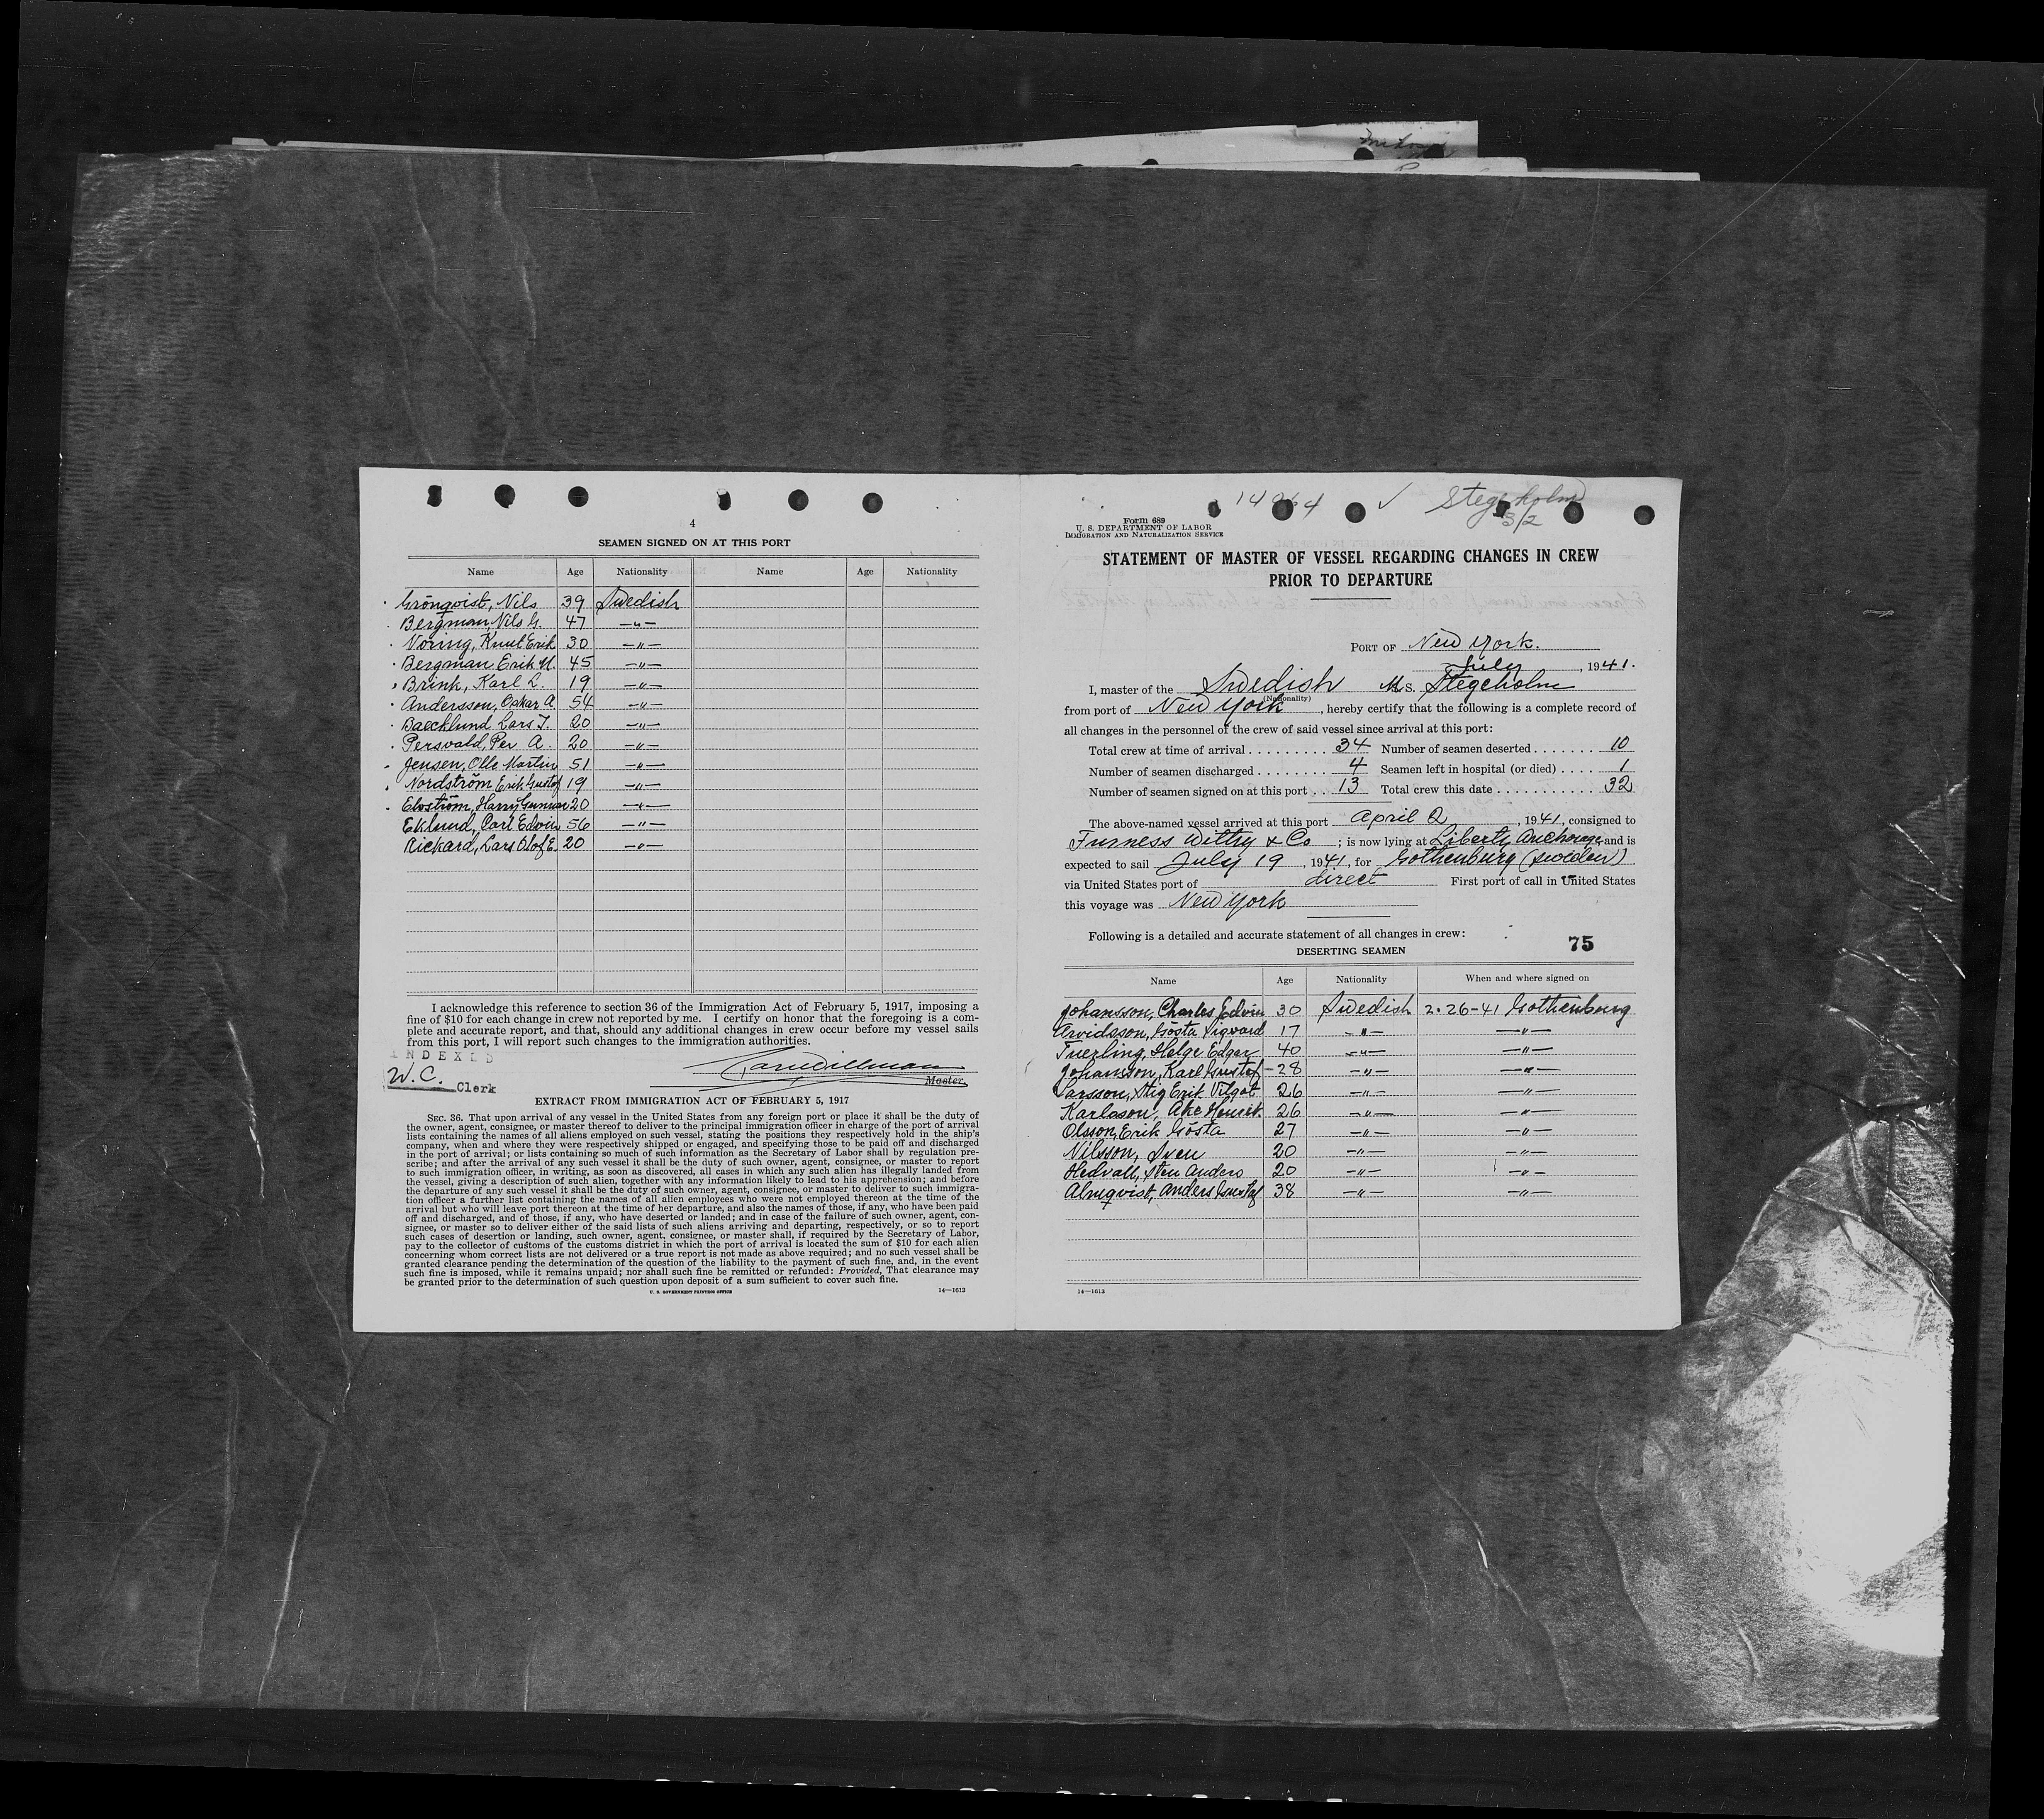 4
SEAMEN SIGNED ON AT THIS PORT
Name Age Nationality Name Age Nationality
Grönqvist, Nils 39 Swedish
Bergman, Nils G. 47 —"—
Noring, Knut Erik 30 —"—
Bergman Erik N. 45 —"—
Brink, Karl L. 19 —"—
Andersson, Oskar A. 54 —"—
Baecklund Lars T. 20 —"—
Persvald, Per A. 20 —"—
Jensen, Olle Martin 51 —"—
Nordström Erik Gustof 19 —"—
Harry Gunnar 20 —"—
Eklund, Carl Edvin 56 —"—
Rickard, Lars Olof E. 20 —"—
I acknowledge this reference to section 36 of the Immigration Act of February 5, 1917, imposing a
fine of $10 for each change in crew not reported by me. I certify on honor that the foregoing is a com-
plete and accurate report, and that, should any additional changes in crew occur before my vessel sails
from this port, I will report such changes to the immigration authorities.
INDEXED
W.C. Clerk
Master.
EXTRACT FROM IMMIGRATION ACT OF FEBRUARY 5, 1917
SEC. 36. That upon arrival of any vessel in the United States from any foreign port or place it shall be the duty of
the owner, agent, consignee, or master thereof to deliver to the principal immigration officer in charge of the port of arrival
lists containing the names of all aliens employed on such vessel, stating the positions they respectively hold in the ship's
company, when and where they were respectively shipped or engaged, and specifying those to be paid off and discharged
in the port of arrival; or lists containing so much of such information as the Secretary of Labor shall by regulation pre-
scribe; and after the arrival of any such vessel it shall be the duty of such owner, agent, consignee, or master to report
to such immigration officer, in writing, as soon as discovered, all cases in which any such alien has illegally landed from
the vessel, giving a description of such alien, together with any information likely to lead to his apprehension; and before
the departure of any such vessel it shall be the duty of such owner, agent, consignee, or master to deliver to such immigra-
tion officer a further list containing the names of all alien employees who were not employed thereon at the time of the
arrival but who will leave port thereon at the time of her departure, and also the names of those, if any, who have been paid
off and discharged, and of those, if any, who have deserted or landed; and in case of the failure of such owner, agent, con-
signee, or master so to deliver either of the said lists of such aliens arriving and departing, respectively, or so to report
such cases of desertion or landing, such owner, agent, consignee, or master shall, if required by the Secretary of Labor,
pay to the collector of customs of the customs district in which the port of arrival is located the sum of $10 for each alien
concerning whom correct lists are not delivered or a true report is not made as above required; and no such vessel shall be
granted clearance pending the determination of the question of the liability to the payment of such fine, and, in the event
such fine is imposed, while it remains unpaid; nor shall such fine be remitted or refunded: Provided, That clearance may
be granted prior to the determination of such question upon deposit of a sum sufficient to cover such fine.
U. S. GOVERNMENT PRINTING OFFICE 14—1613
Stegeholm
Form 689
U. S. DEPARTMENT OF LABOR
IMMIGRATION AND NATURALIZATION SERVICE
STATEMENT OF MASTER OF VESSEL REGARDING CHANGES IN CREW
PRIOR TO DEPARTURE
PORT OF New York.
July, 1941.
I, master of the Swedish M.S. Stegeholm
(Nationality)
from port of New York, hereby certify that the following is a complete record of
all changes in the personnel of the crew of said vessel since arrival at this port:
Total crew at time of arrival . . . . . . . . . 34 Number of seamen deserted . . . . . . . 10
Number of seamen discharged . . . . . . . 4 Seamen left in hospital (or died) . . . . 1
Number of seamen signed on at this port . . 13 Total crew this date . . . . . . . . . . . . 32
The above-named vessel arrived at this port April 2, 1941, consigned to
Furness Withy & Co; is now lying at Liberty Anchorage and is
expected to sail July 19, 1941, for Gothenburg (Sweden)
via United States port of direct First port of call in United States
this voyage was New York
Following is a detailed and accurate statement of all changes in crew:
75
DESERTING SEAMEN
Name Age Nationality When and where signed on
Johansson, Charles Edvin 30 Swedish 2-26-41 Gothenburg
Arvidsson, Gösta Sigvard 17 —"— —"—
Helge Edgar 40 —"— —"—
Johansson, Karl Gustaf 28 —"— —"—
Larsson, Stig Erik Vilgot 26 —"— —"—
Karlsson, Ake Henrik 26 —"— —"—
Olsson, Erik Gösta 27 —"— —"—
Nilsson, Sven 20 —"— —"—
Hedvall, Sten Anders 20 —"— —"—
Almqvist, Anders Gustaf 38 —"— —"—
14—1613